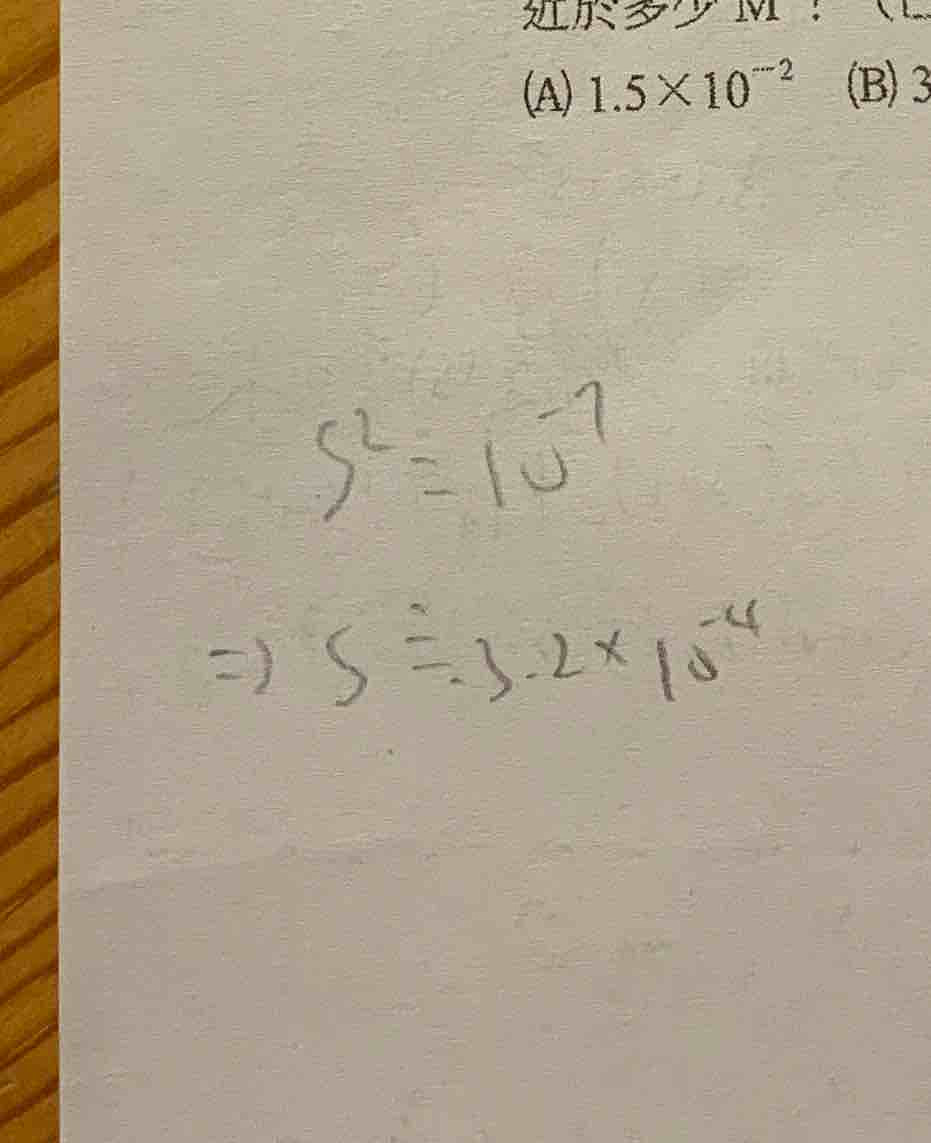 近於多少 M？（
(A) 1.5×10⁻² (B) 3
S² = 10⁻⁷
=> S ≒ 3.2 × 10⁻⁴